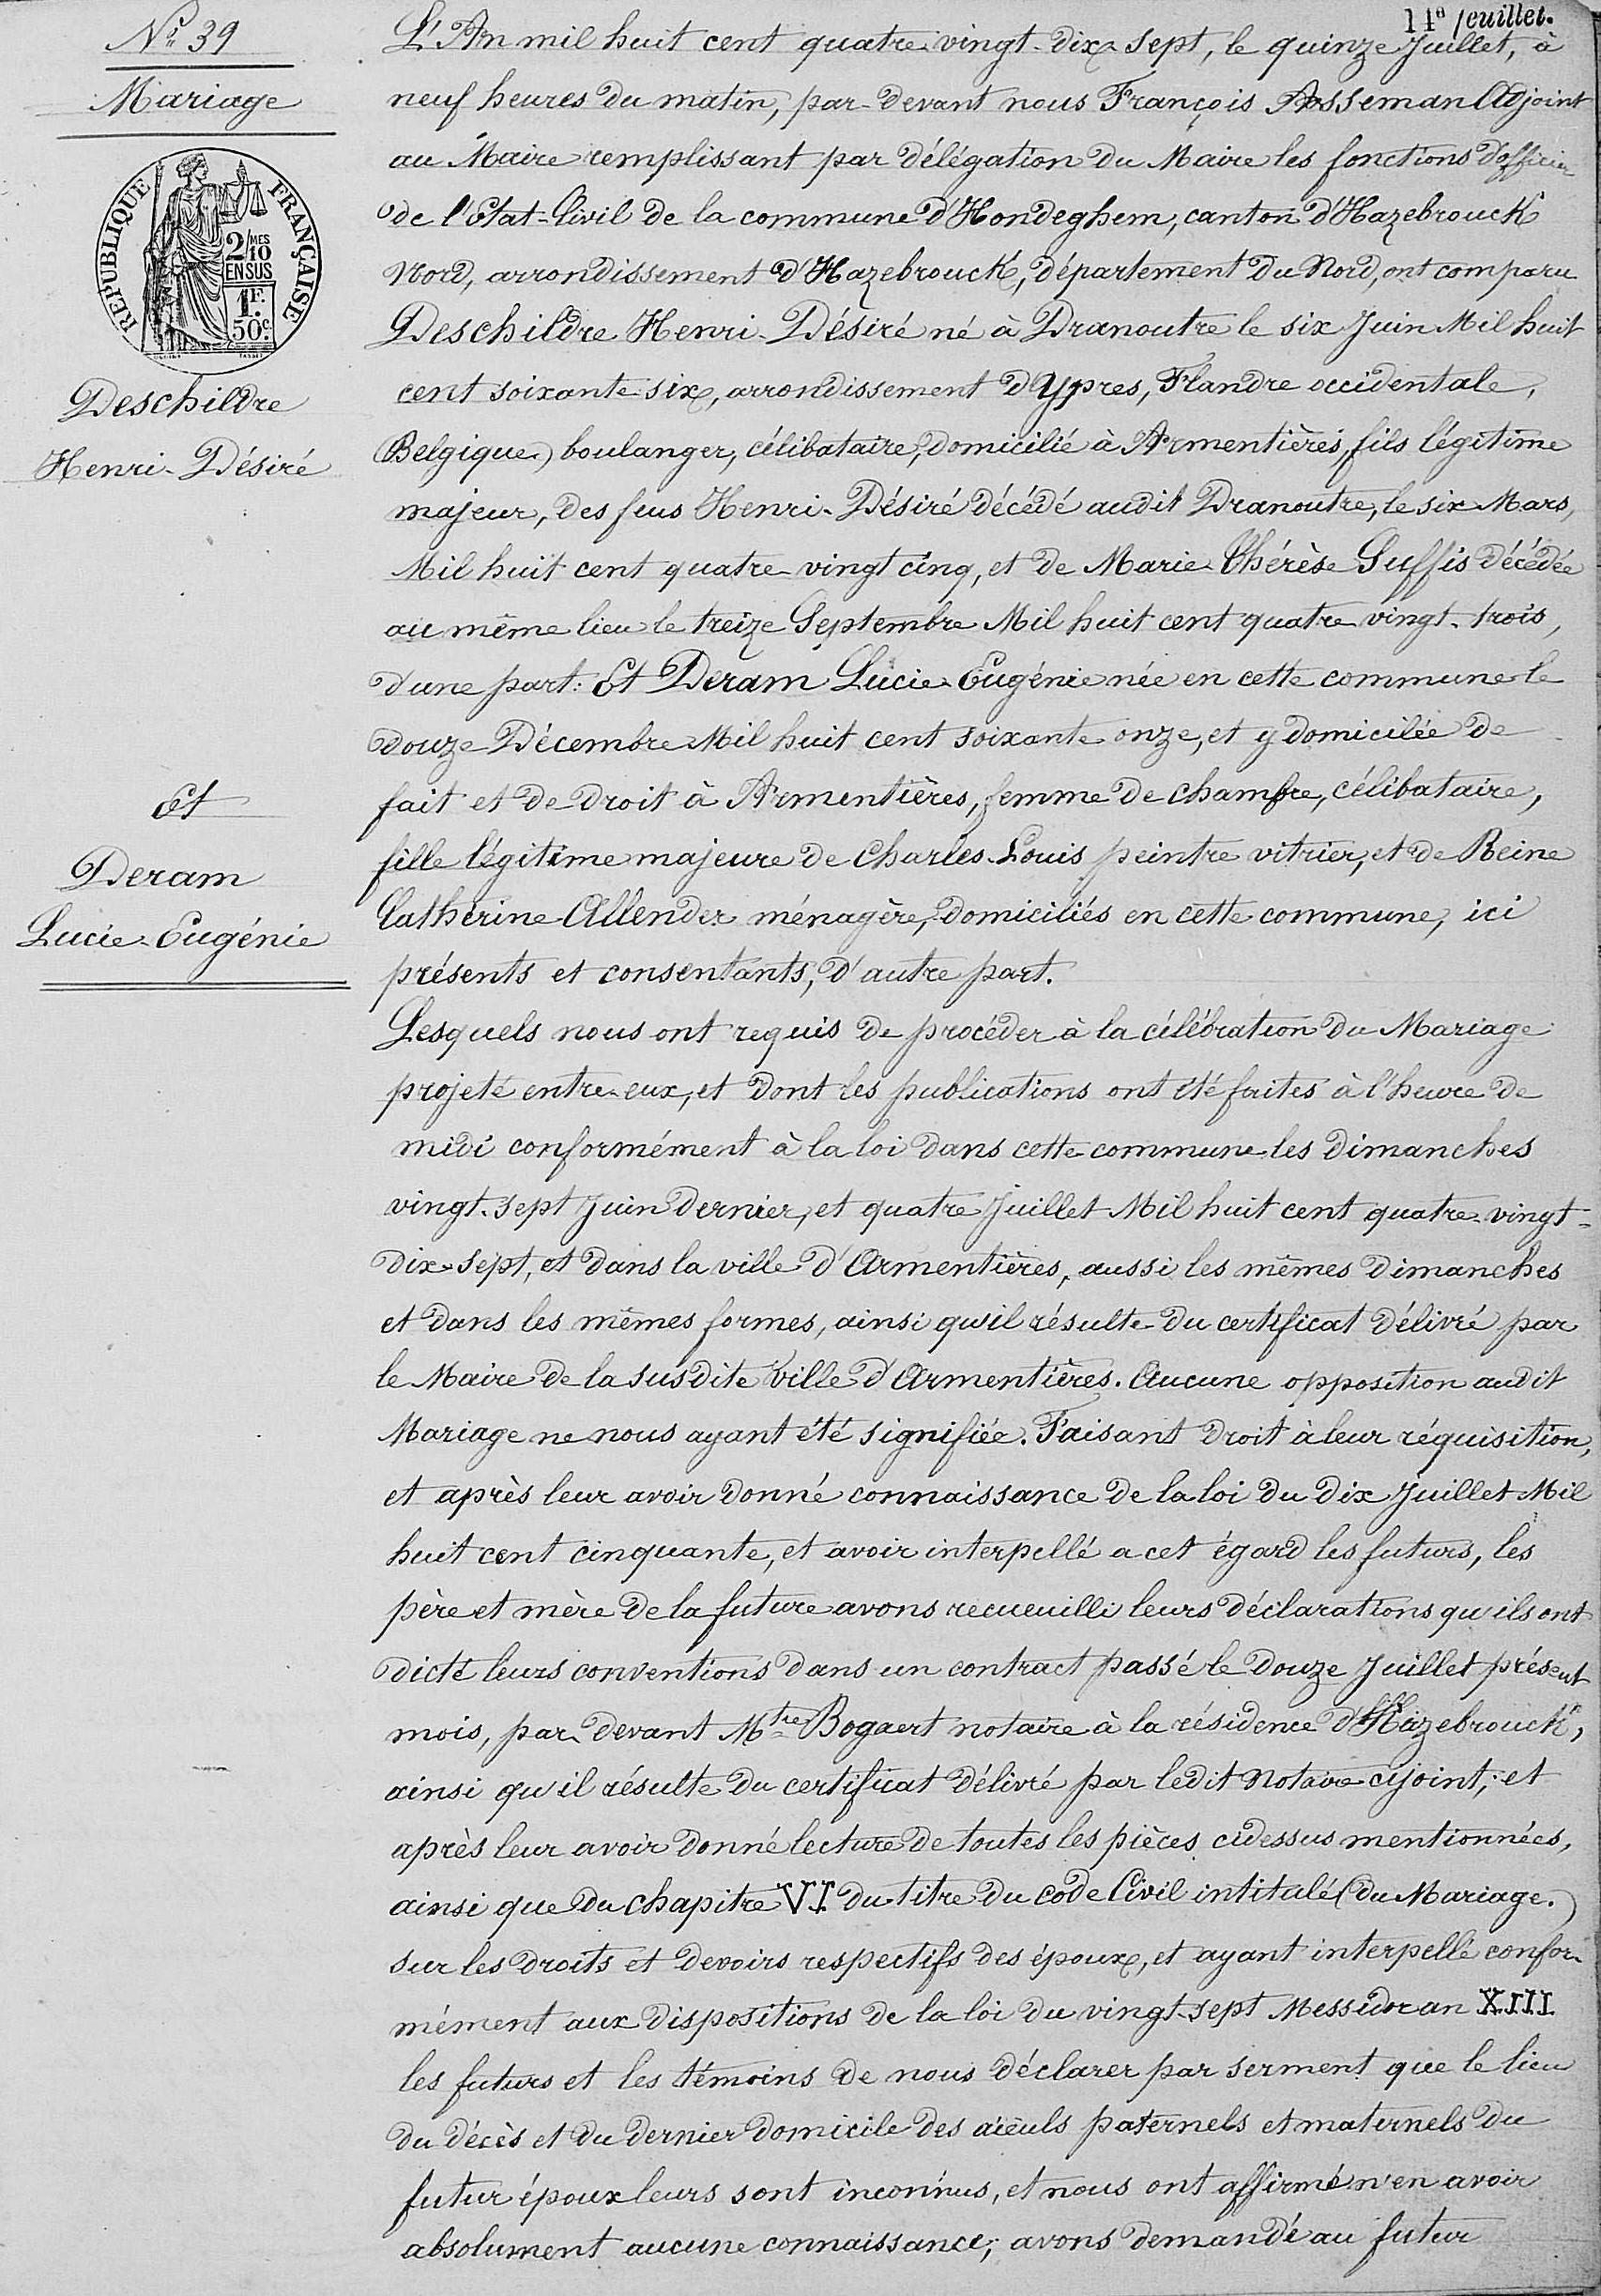 11e feuillet.
No 39
Mariage
REPUBLIQUE FRANÇAISE
2/10 MES
EN SUS
1F.
50c.
Deschildre
Henri-Désiré
Et
Deram
Lucie-Eugénie
L'An mil huit cent quatre-vingt-dix-sept, le quinze Juillet, à
neuf heures du matin, par-devant nous François Asseman Adjoint
au Maire remplissant par délégation du Maire les fonctions d'officier
de l'Etat-Civil de la commune d'Hondeghem, canton d'Hazebrouck
Nord, arrondissement d'Hazebrouck, département du Nord, ont comparu
Deschildre Henri-Désiré né à Dranoutre le six Juin Mil huit
cent soixante-six, arrondissement d'Ypres, Flandre occidentale,
(Belgique) boulanger, célibataire, domicilié à Armentières, fils légitime
majeur, des feus Henri-Désiré décédé audit Dranoutre, le six Mars,
Mil huit cent quatre-vingt cinq, et de Marie-Thérèse Suffis décédée
au même lieu le treize Septembre Mil huit cent quatre-vingt-trois,
d'une part: Et Deram Lucie-Eugénie née en cette commune le
douze Décembre Mil huit cent soixante onze, et y domiciliée de
fait et de droit à Armentières, femme de chambre, célibataire,
fille légitime majeure de Charles-Louis peintre vitrier, et de Reine
Catherine Allender ménagère, domiciliés en cette commune, ici
présents et consentants, d'autre part.
Lesquels nous ont requis de procéder à la célébration du Mariage
projeté entre-eux, et dont les publications ont été faites à l'heure de
midi conformément à la loi dans cette commune les dimanches
vingt-sept Juin dernier, et quatre Juillet Mil huit cent quatre-vingt-
dix-sept, et dans la ville d'Armentières, aussi les mêmes dimanches
et dans les mêmes formes, ainsi qu'il résulte du certificat délivré par
le Maire de la susdite ville d'Armentières. Aucune opposition audit
Mariage ne nous ayant été signifiée. Faisant droit à leur réquisition,
et après leur avoir donné connaissance de la loi du dix Juillet Mil
huit cent cinquante, et avoir interpellé a cet égard les futurs, les
père et mère de la future avons recueuilli leurs déclarations qu'ils ont
dicté leurs conventions dans un contract passé le douze Juillet présent
mois, par-devant Mtre Bogaert notaire à la résidence d'Hazebrouck,
ainsi qu'il résulte du certificat délivré par ledit Notaire cijoint; et
après leur avoir donné lecture de toutes les pièces cidessus mentionnées,
ainsi que du chapitre VI du titre du code Civil intitulé (du Mariage.)
sur les droits et devoirs respectifs des époux, et ayant interpellé confor-
mément aux dispositions de la loi du vingt-sept Messidor an XIII
les futurs et les témoins de nous déclarer par serment que le lieu
du décès et du dernier domicile des aïeuls paternels et maternels du
futur époux leurs sont inconnus, et nous ont affirmé n'en avoir
absolument aucune connaissance; avons demandé au futur